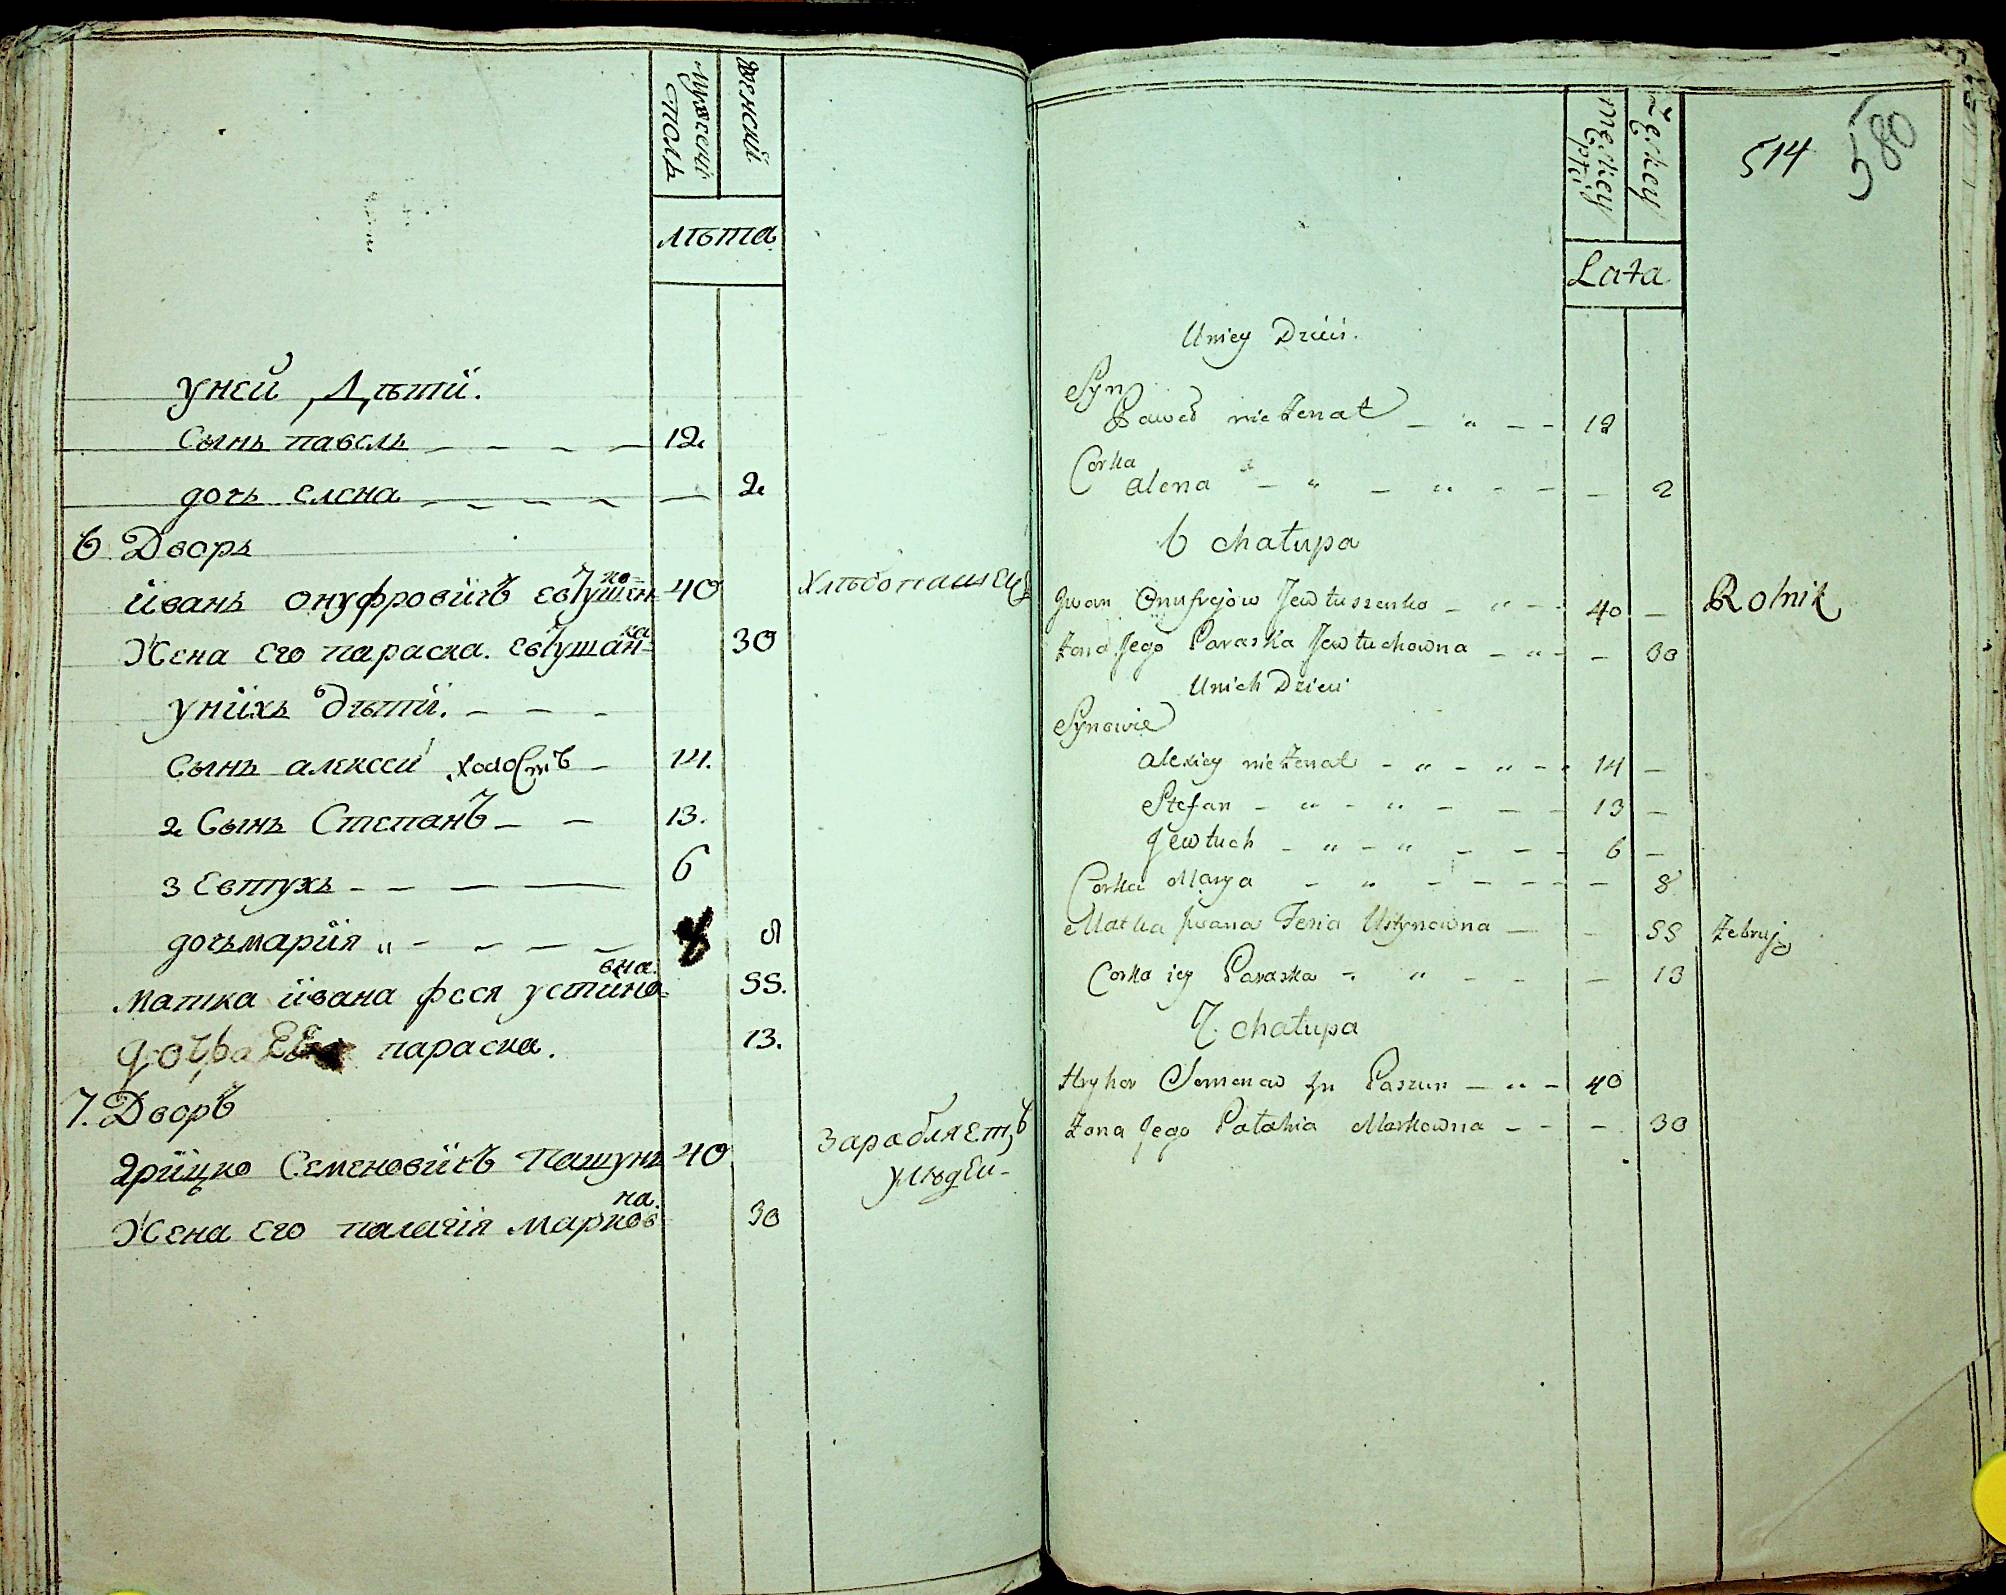 мужескій
полъ
женскій
лѣта
у ней Дѣти.
Сынъ павелъ 12.
дочь елена 2
6 Дворъ
иванъ онуфровичъ евтушенко 40 Хлѣбопашецъ
Жена Его параска. евтушанка 30
у нихъ дѣти.
Сынъ алексей холостъ 14.
2 Сынъ Степанъ 13.
3 Евтухъ 6
дочь мария 8
матка ивана феся устиновна 55.
дочь параска. 13.
7. Дворъ
Грицко Семеновичъ Пашунъ 40 Зарабляетъ
у людей
Жена его палагия Марковна 30
męskey
płci
Żeńskey
514
580
Lata
U niey Dzieci.
Syn
Paweł nie żenat 12
Corka
alena 2
6 chałupa
Jwan Onufrejow Jewtuszenko 40 — Rolnik
żona Jego Paraska Jewtuchowna — 30
U nich Dzieci
Synowie
alexiey nie żenat 14 —
Stefan 13 —
Jewtuch 6 —
Corka Marya — 8
Matka Jwana Fesia Ustynowna — 55 żebruje
Corka iey Paraska — 13
7. chałupa
Hryhor Semenow Paszun 40
żona Jego Pałahia Markowna — 30